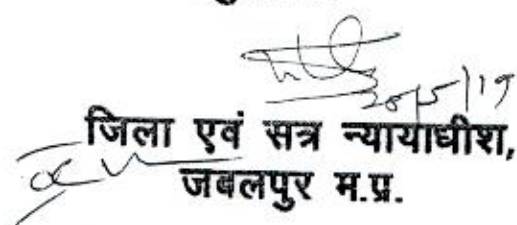 28/5/19
जिला एवं सत्र न्यायाधीश,
जबलपुर म.प्र.